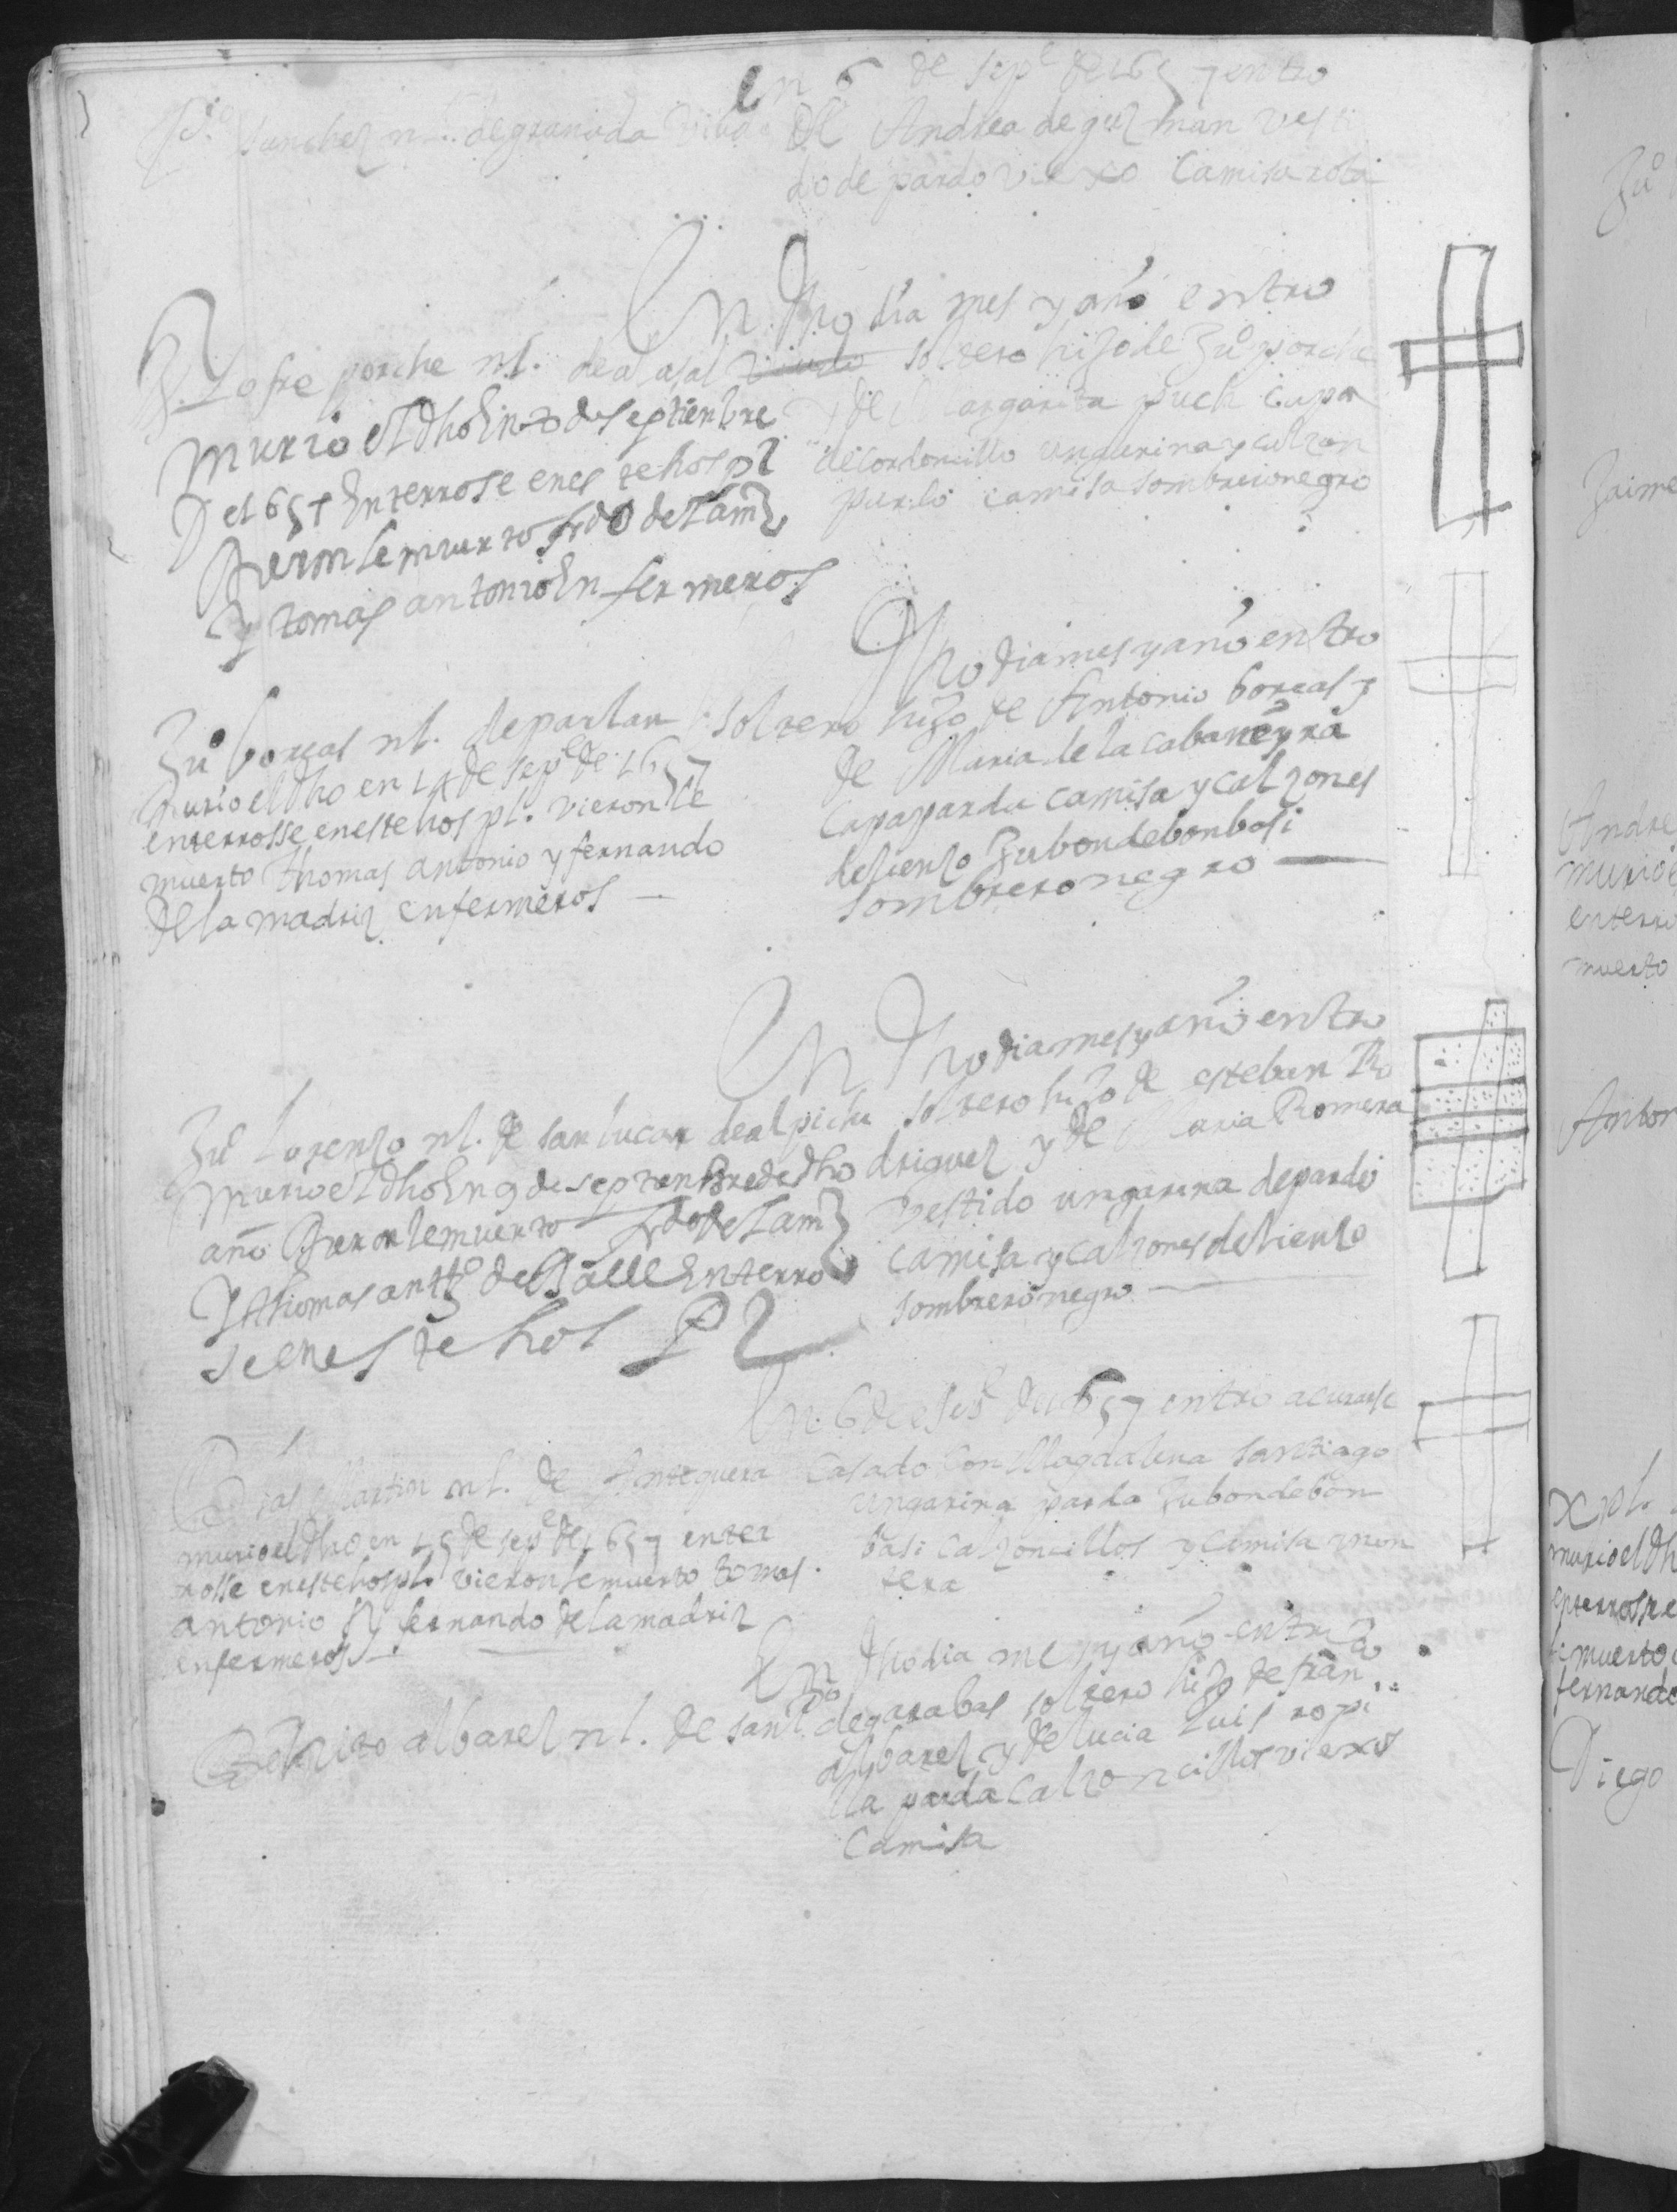 En 6 de sepe de 1657 entro
Sanchez nl. de granada viudo de Andrea de guzman vesti
do de pardo viexo camisa rota
En dho dia mes y año entro
Jofre porche nl. de alasal viudo soltero hijo de Juo porche
y de Margarita puch capa
de cordoncillo ungarina y calzon
pardo camisa sombrero negro
murio el dho En 20 de septienbre
De 1657 Enterrose en este hospl
Vieronle muerto fdo de lam
y tomas antonio Enfermeros
dho dia mes y año entro
Juo boreas nl. de parlan soltero hijo de Antonio boreas y
de Maria de la cabaneyra
capa parda camisa y calzones
de lienzo Jubon de bonbasi
sombrero negro
murio el dho en 14 de sepe de 1657
enterrosse en este hospl. vieronle
muerto thomas antonio y fernando
de la madriz enfermeros
En dho dia mes y año entro
Juo Lorenzo nl. de san lucar de alpichin soltero hijo de esteban Ro
driguez y de Maria Romera
vestido ungarina de pardo
camisa y calzones de lienzo
sombrero negro
Murio el dho En 9 de septenbre de dho
año Vieronle muerto fdo de lam
Y thomas antto del Valle Enterro
se en este hos Pl
En 6 de sepe de 1657 entro a curarse
Blas Martin nl. de Antequera Casado con Magdalena santiago
ungarina parda Jubon de bon
basi calzoncillos y camisa mon
tera
murio el dho en 15 de sepe de 1657 enter
rosse en este hospl. vieronle muerto tomas
antonio y fernando de la madriz
enfermeros
En dho dia mes y año entro
Benito albarez nl. de santo de garabas soltero hijo de franco
albarez y de lucia luis ropi
lla parda calzoncillos viexos
camisa